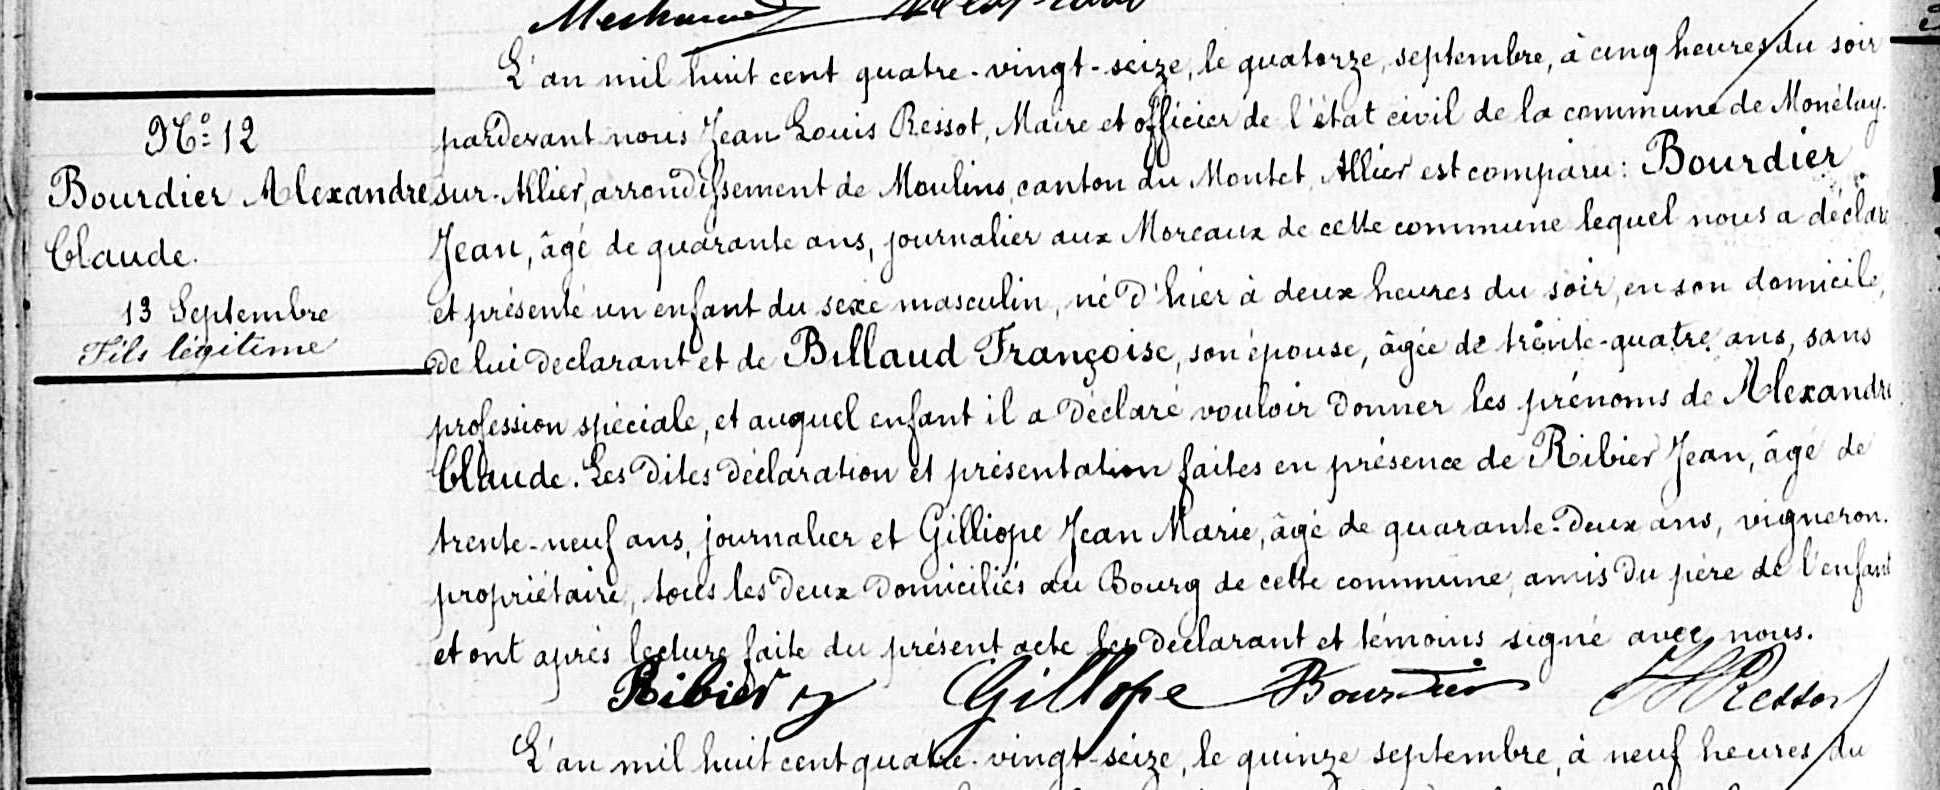 L'an mil huit cent quatre-vingt-seize, le quatorze, septembre, à cinq heures du soir
N° 12
pardevant nous Jean Louis Ressot, Maire et officier de l'état civil de la commune de Monétay-
Bourdier Alexandre
sur-Allier, arrondissement de Moulins, canton du Montet Allier est comparu: Bourdier
Claude.
Jean, âgé de quarante ans, journalier aux Moreaux de cette commune lequel nous a déclaré
13 Septembre
et présenté un enfant du sexe masculin, né d'hier à deux heures du soir, en son domicile,
Fils légitime
de lui déclarant et de Billaud Françoise, son épouse, âgée de trente-quatre ans, sans
profession spéciale, et auquel enfant il a déclaré vouloir donner les prénoms de Alexandre
Claude. Les dites déclaration et présentation faites en présence de Ribier Jean, âgé de
trente-neuf ans, journalier et Gilliope Jean Marie, âgé de quarante-deux ans, vigneron.
propriétaire, tous les deux domiciliés au Bourg de cette commune, amis du père de l'enfant
et ont après lecture faite du présent acte les déclarant et témoins signé avec nous.
Ribier Gillope Bourdier Ressot
L'an mil huit cent quatre-vingt-seize, le quinze septembre, à neuf heures du